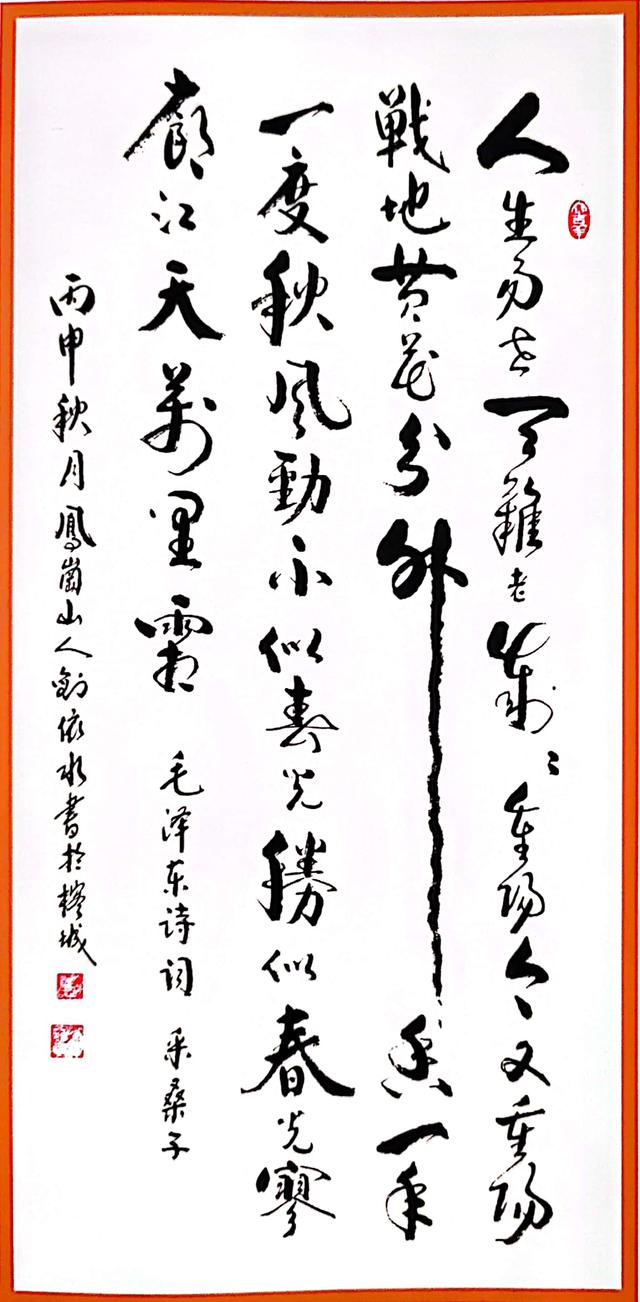 人生易老天難老歲〻重陽今又重陽
戦地黄花分外香一年
一度秋風勁不似春光勝似春光寥
廓江天萬里霜 毛泽东诗词 采桑子
丙申秋月鳳崗山人依水書於榕城